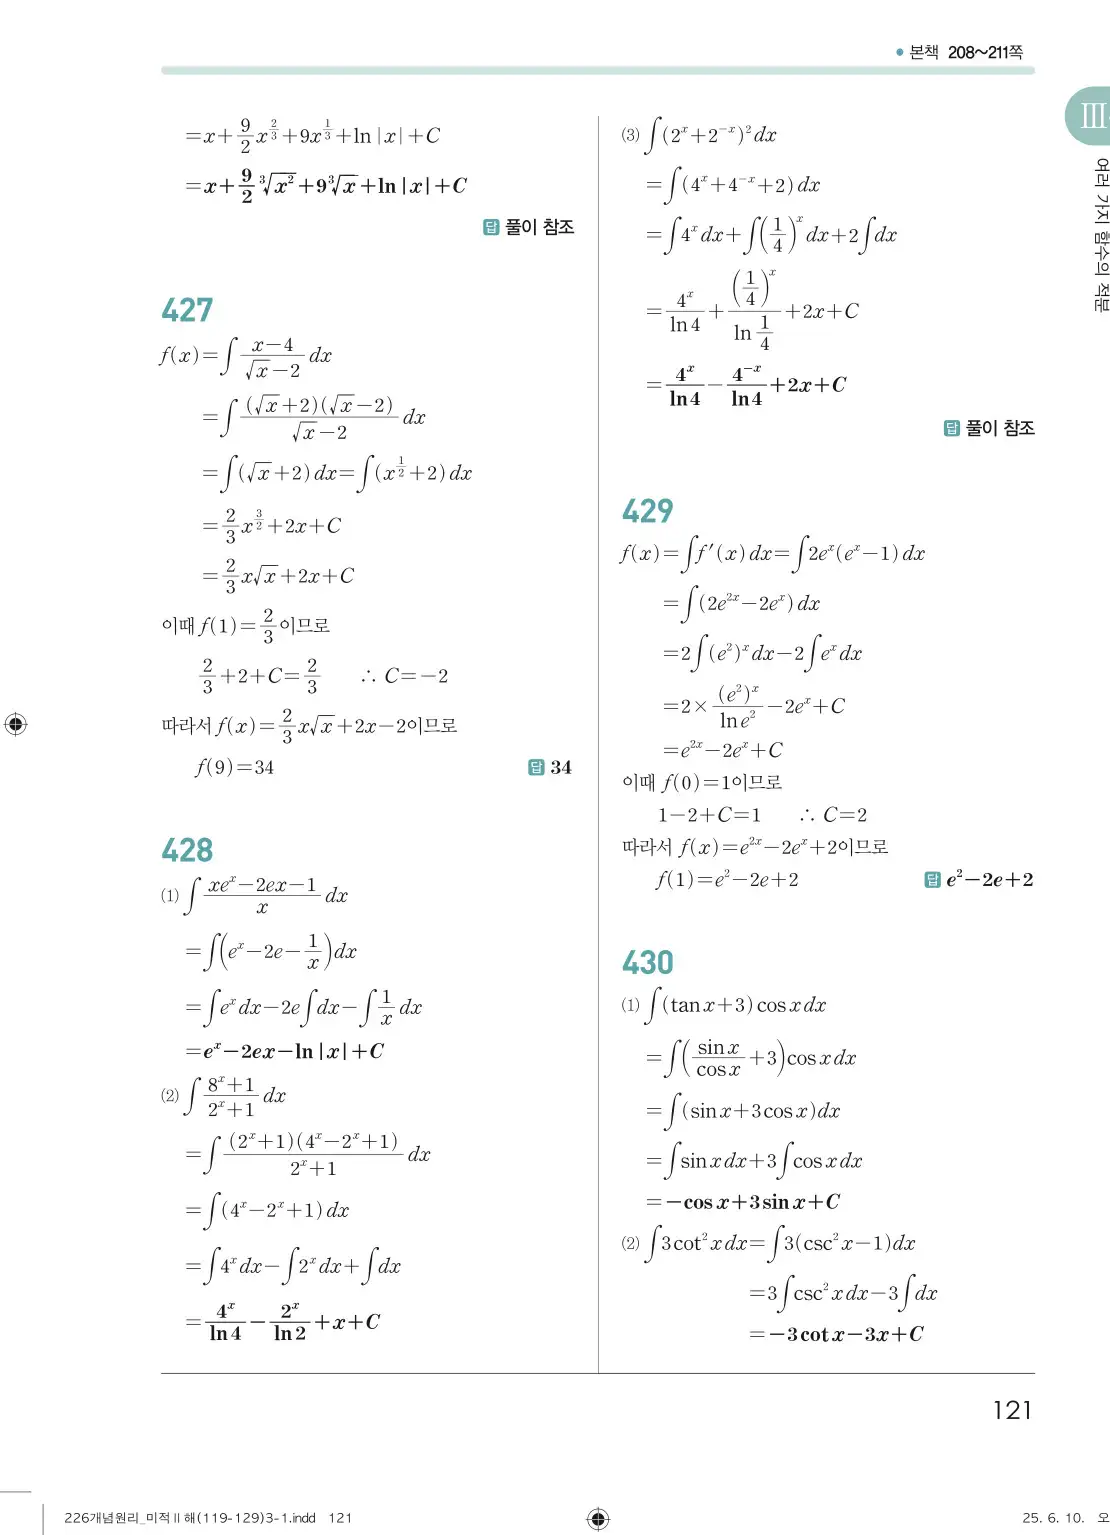 • 본책 208~211쪽
Ⅲ-
여러 가지 함수의 적분
=x+9/2 x^(2/3)+9x^(1/3)+ln|x|+C
=x+9/2 ∛(x²)+9∛x+ln|x|+C
답 풀이 참조
427
f(x)=∫ (x-4)/(√x-2) dx
=∫ ((√x+2)(√x-2))/(√x-2) dx
=∫(√x+2)dx=∫(x^(1/2)+2)dx
=2/3 x^(3/2)+2x+C
=2/3 x√x+2x+C
이때 f(1)=2/3이므로
2/3+2+C=2/3 ∴ C=-2
따라서 f(x)=2/3 x√x+2x-2이므로
f(9)=34 답 34
428
⑴ ∫ (xe^x-2ex-1)/x dx
=∫(e^x-2e-1/x)dx
=∫e^x dx-2e∫dx-∫1/x dx
=e^x-2ex-ln|x|+C
⑵ ∫ (8^x+1)/(2^x+1) dx
=∫ ((2^x+1)(4^x-2^x+1))/(2^x+1) dx
=∫(4^x-2^x+1)dx
=∫4^x dx-∫2^x dx+∫dx
=4^x/ln4-2^x/ln2+x+C
⑶ ∫(2^x+2^(-x))²dx
=∫(4^x+4^(-x)+2)dx
=∫4^x dx+∫(1/4)^x dx+2∫dx
=4^x/ln4+(1/4)^x/ln(1/4)+2x+C
=4^x/ln4-4^(-x)/ln4+2x+C
답 풀이 참조
429
f(x)=∫f′(x)dx=∫2e^x(e^x-1)dx
=∫(2e^(2x)-2e^x)dx
=2∫(e²)^x dx-2∫e^x dx
=2×(e²)^x/ln e²-2e^x+C
=e^(2x)-2e^x+C
이때 f(0)=1이므로
1-2+C=1 ∴ C=2
따라서 f(x)=e^(2x)-2e^x+2이므로
f(1)=e²-2e+2 답 e²-2e+2
430
⑴ ∫(tan x+3)cos x dx
=∫(sin x/cos x+3)cos x dx
=∫(sin x+3cos x)dx
=∫sin x dx+3∫cos x dx
=-cos x+3sin x+C
⑵ ∫3cot²x dx=∫3(csc²x-1)dx
=3∫csc²x dx-3∫dx
=-3cot x-3x+C
121
226개념원리_미적Ⅱ해(119-129)3-1.indd 121
25. 6. 10. 오